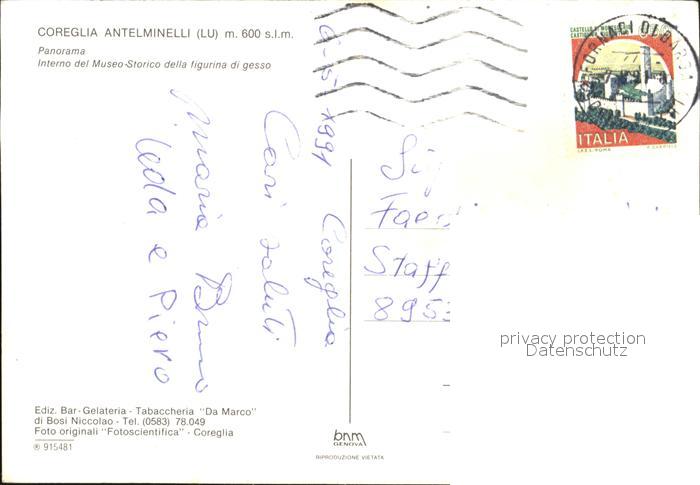 COREGLIA ANTELMINELLI (LU) m. 600 s.l.m.
Panorama
Interno del Museo-Storico della figurina di gesso
1991 Coreglia
Cari saluti
Maria Bruno
Leda e Piero
Staff
895
CASTELLO DI
ITALIA
I.P.Z.S. ROMA
FORNACI DI BARGA
privacy protection
Datenschutz
Ediz. Bar-Gelateria - Tabaccheria "Da Marco"
di Bosi Niccolao - Tel. (0583) 78.049
Foto originali "Fotoscientifica" - Coreglia
® 915481
bnm
GENOVA
RIPRODUZIONE VIETATA